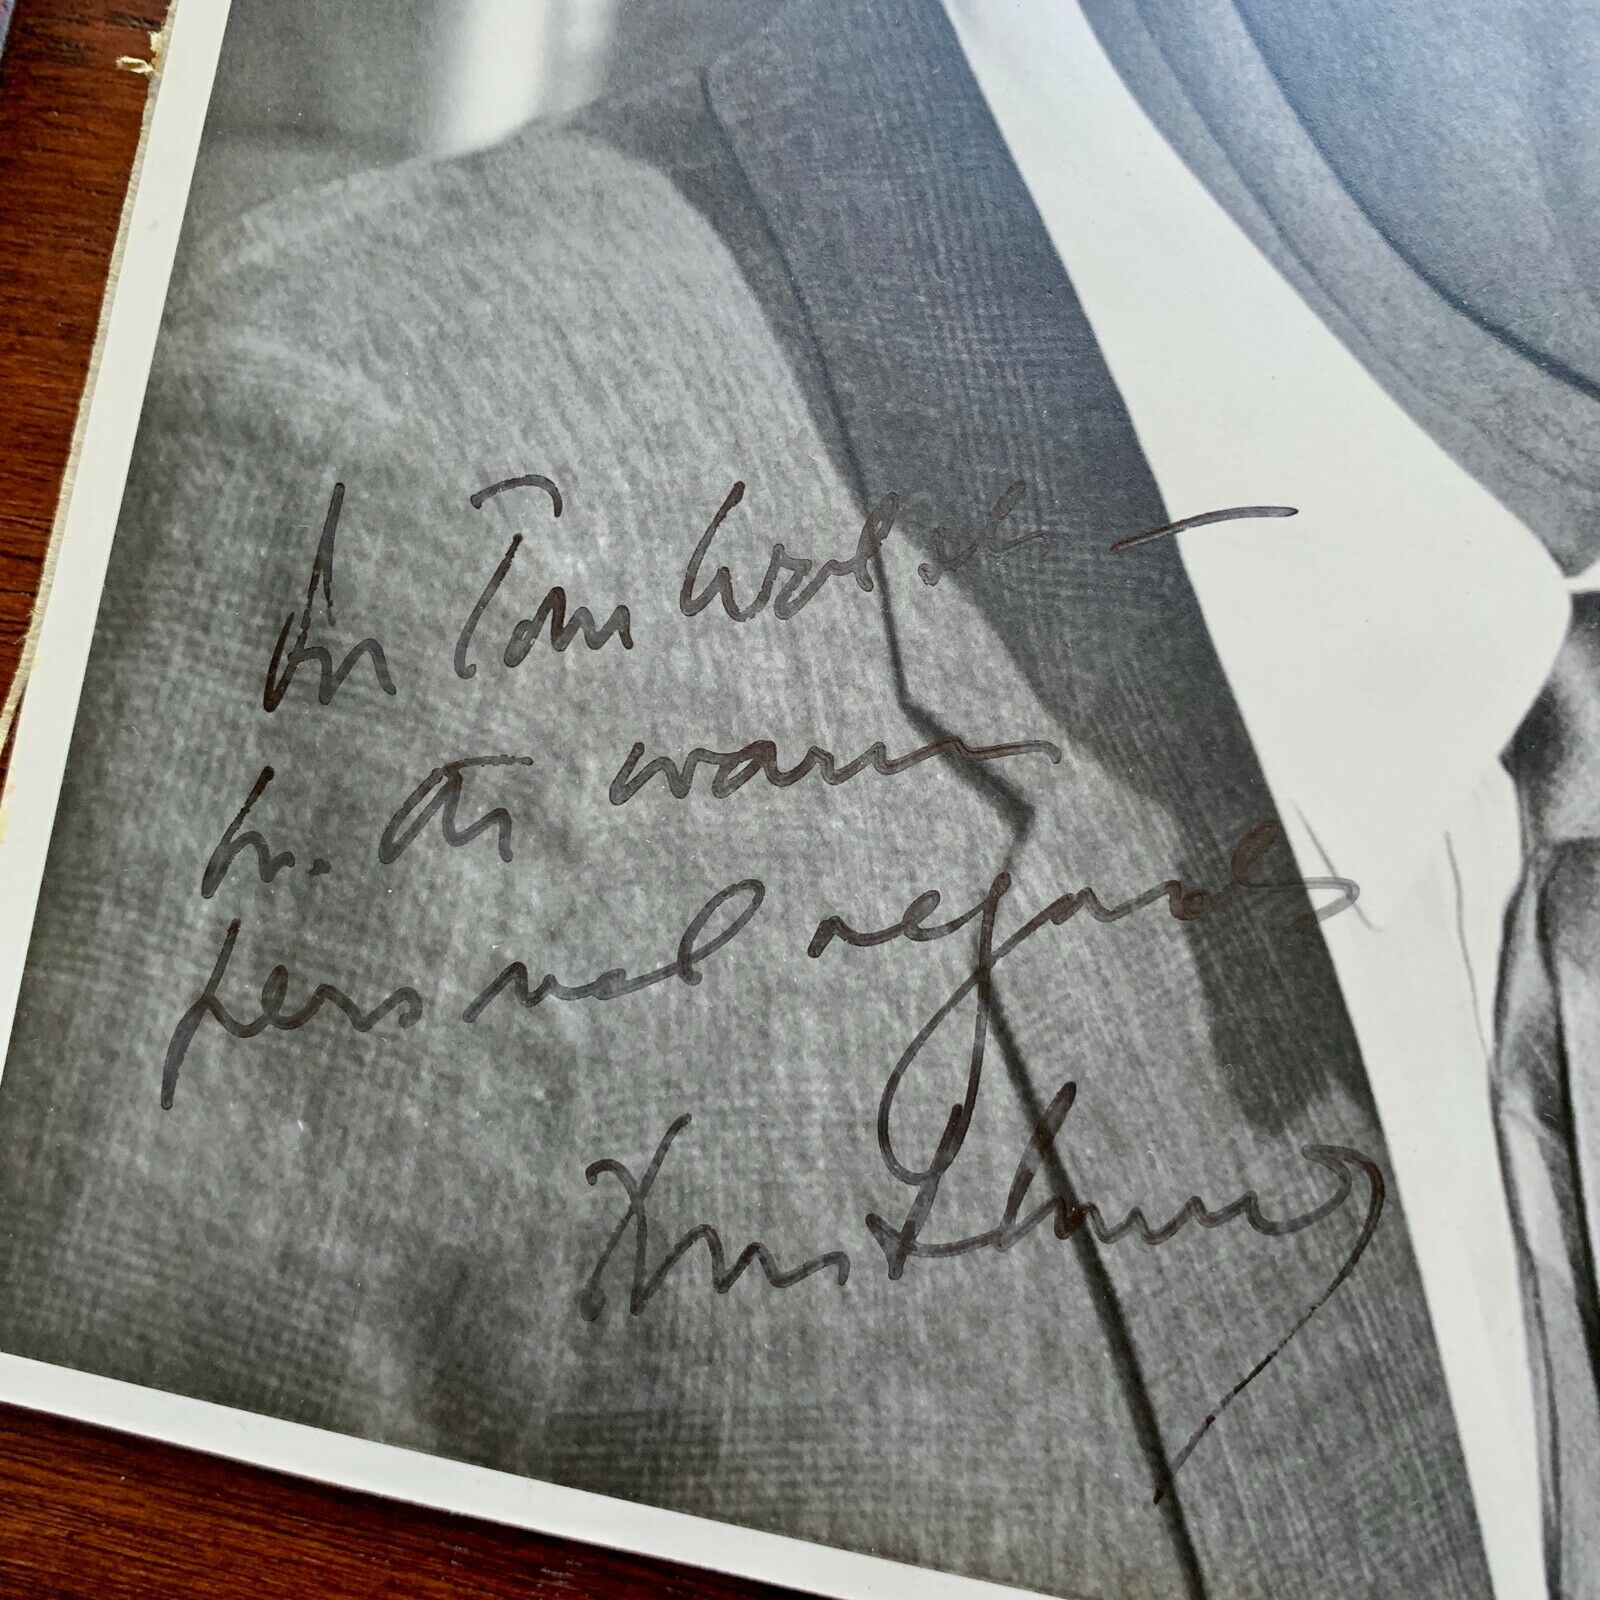 For Tom Walsh —
with warm
personal regards